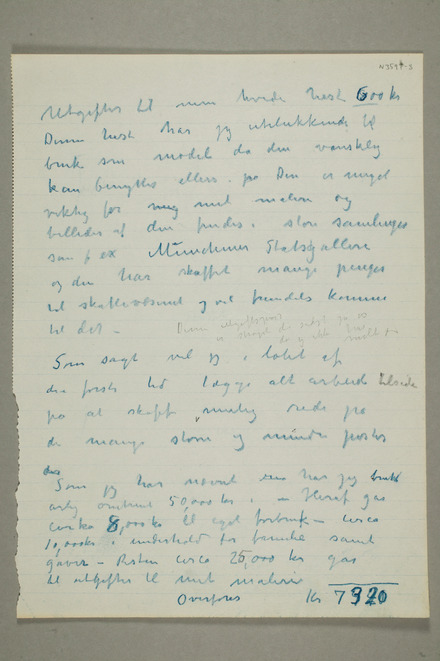 N3594-3
Utgifter til min hvide hest 600 kr
Denne hest har jeg udelukkende til
bruk som model da den vanskelig
kan benyttes ellers. på Den er meget
viktig for mig mit maleri og
billeder af den findes i store samlinger
som f ex Münchener Statsgalleri
og den har skaffet mange penger
til skattevæsenet og vil fremdeles komme
til det –
Som sagt vil jeg i løbet af
den første tid lægge alt arbeide tilside
på at skaffe mulig rede på
de mange større og mindre poster
Som jeg har nævnt har jeg brukt
årlig omtrent 50,000 kr. – Heraf går
cirka 8,000 kr til eget forbruk – circa
10,000 kr i underhold for familie samt
gaver – Resten circa 25,000 kr går
til utgifter til mit maleri
Overføres Kr 7320